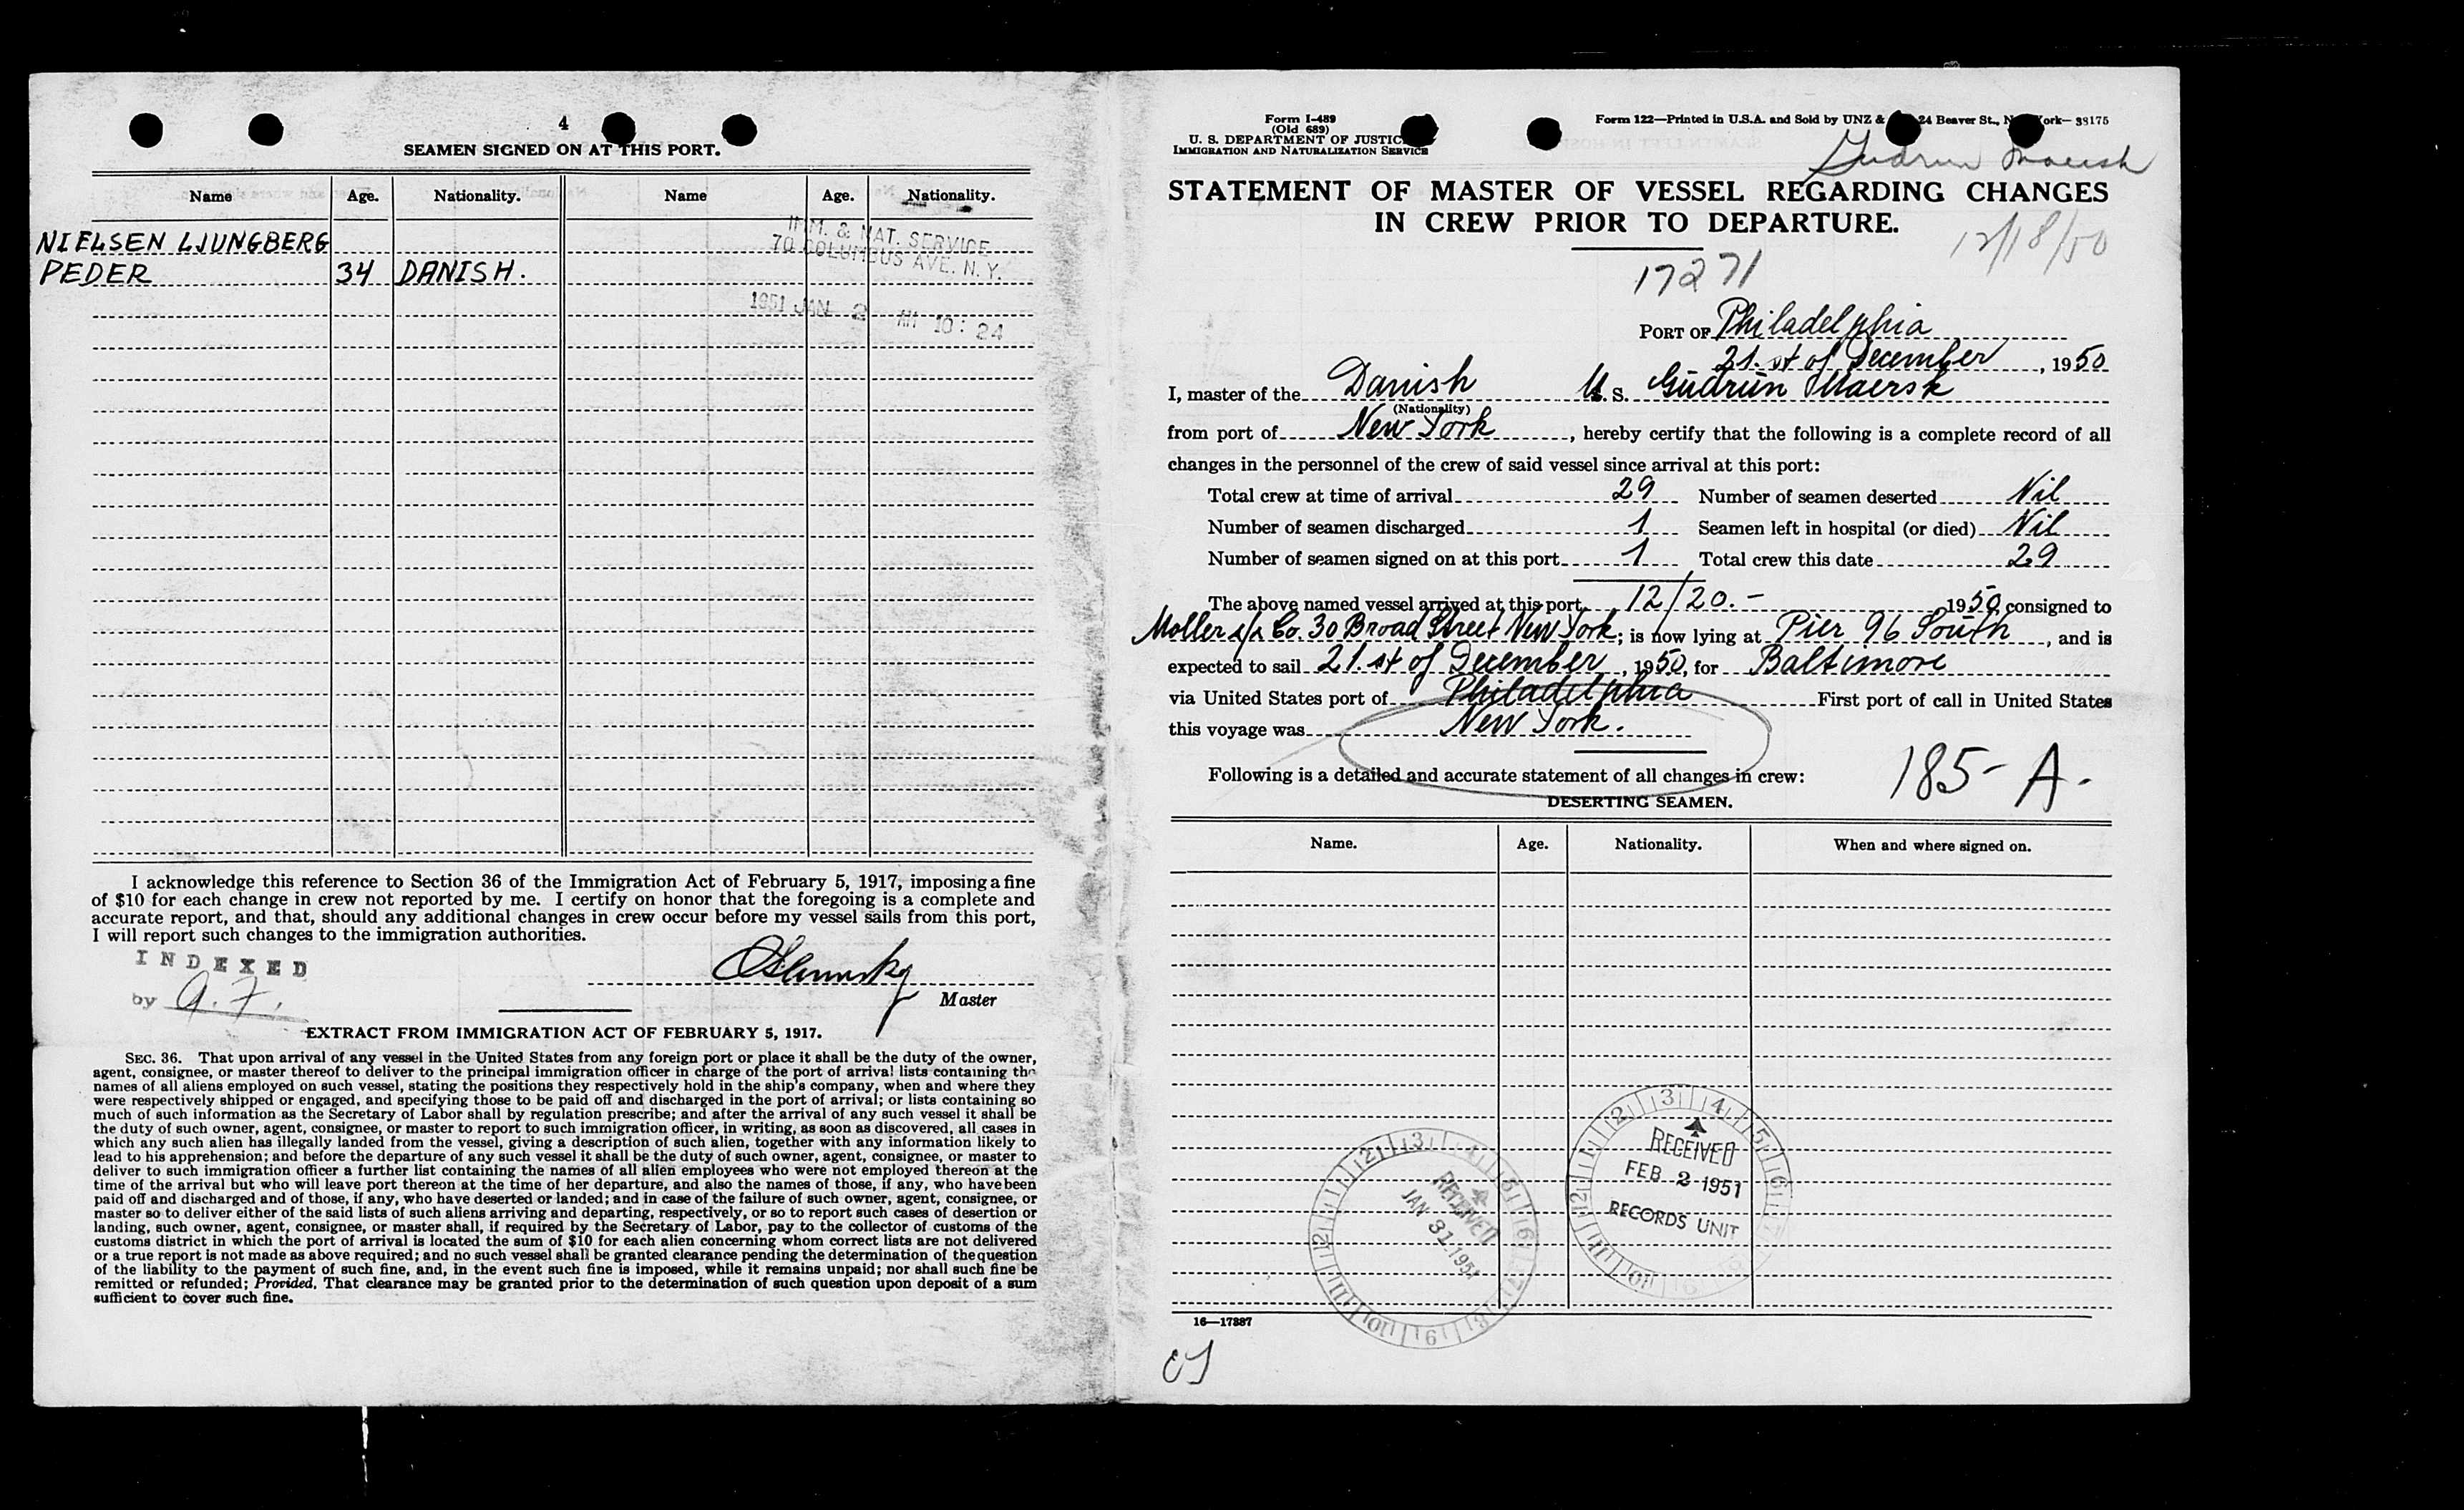 4
SEAMEN SIGNED ON AT THIS PORT.
Name Age. Nationality. Name Age. Nationality.
NIELSEN LJUNGBERG
PEDER 34 DANISH.
IMM. & NAT. SERVICE
70 COLUMBUS AVE. N. Y.
1951 JAN 2 AM 10:24
I acknowledge this reference to Section 36 of the Immigration Act of February 5, 1917, imposing a fine
of $10 for each change in crew not reported by me. I certify on honor that the foregoing is a complete and
accurate report, and that, should any additional changes in crew occur before my vessel sails from this port,
I will report such changes to the immigration authorities.
INDEXED
by a. F.
Master
EXTRACT FROM IMMIGRATION ACT OF FEBRUARY 5, 1917.
SEC. 36. That upon arrival of any vessel in the United States from any foreign port or place it shall be the duty of the owner,
agent, consignee, or master thereof to deliver to the principal immigration officer in charge of the port of arrival lists containing the
names of all aliens employed on such vessel, stating the positions they respectively hold in the ship's company, when and where they
were respectively shipped or engaged, and specifying those to be paid off and discharged in the port of arrival; or lists containing so
much of such information as the Secretary of Labor shall by regulation prescribe; and after the arrival of any such vessel it shall be
the duty of such owner, agent, consignee, or master to report to such immigration officer, in writing, as soon as discovered, all cases in
which any such alien has illegally landed from the vessel, giving a description of such alien, together with any information likely to
lead to his apprehension; and before the departure of any such vessel it shall be the duty of such owner, agent, consignee, or master to
deliver to such immigration officer a further list containing the names of all alien employees who were not employed thereon at the
time of the arrival but who will leave port thereon at the time of her departure, and also the names of those, if any, who have been
paid off and discharged and of those, if any, who have deserted or landed; and in case of the failure of such owner, agent, consignee, or
master so to deliver either of the said lists of such aliens arriving and departing, respectively, or so to report such cases of desertion or
landing, such owner, agent, consignee, or master shall, if required by the Secretary of Labor, pay to the collector of customs of the
customs district in which the port of arrival is located the sum of $10 for each alien concerning whom correct lists are not delivered
or a true report is not made as above required; and no such vessel shall be granted clearance pending the determination of the question
of the liability to the payment of such fine, and, in the event such fine is imposed, while it remains unpaid; nor shall such fine be
remitted or refunded; Provided, That clearance may be granted prior to the determination of such question upon deposit of a sum
sufficient to cover such fine.
Form I-489
(Old 689)
U. S. DEPARTMENT OF JUSTICE
IMMIGRATION AND NATURALIZATION SERVICE
Form 122—Printed in U.S.A. and Sold by UNZ & 24 Beaver St., New York—38175
Gudrun Maersk
STATEMENT OF MASTER OF VESSEL REGARDING CHANGES
IN CREW PRIOR TO DEPARTURE.
12/18/50
17271
PORT OF Philadelphia
21. st of December, 1950
I, master of the Danish M. S. Gudrun Maersk
(Nationality)
from port of New York, hereby certify that the following is a complete record of all
changes in the personnel of the crew of said vessel since arrival at this port:
Total crew at time of arrival 29 Number of seamen deserted Nil
Number of seamen discharged 1 Seamen left in hospital (or died) Nil
Number of seamen signed on at this port 1 Total crew this date 29
The above named vessel arrived at this port 12/20.- 1950 consigned to
Moller s/s Co. 30 Broad Street New York; is now lying at Pier 96 South, and is
expected to sail 21. st of December, 1950, for Baltimore
via United States port of Philadelphia First port of call in United States
this voyage was New York.
Following is a detailed and accurate statement of all changes in crew:
185-A-
DESERTING SEAMEN.
Name. Age. Nationality. When and where signed on.
RECEIVED
JAN 31 1951
RECEIVED
FEB 2 1951
RECORDS UNIT
16—17887